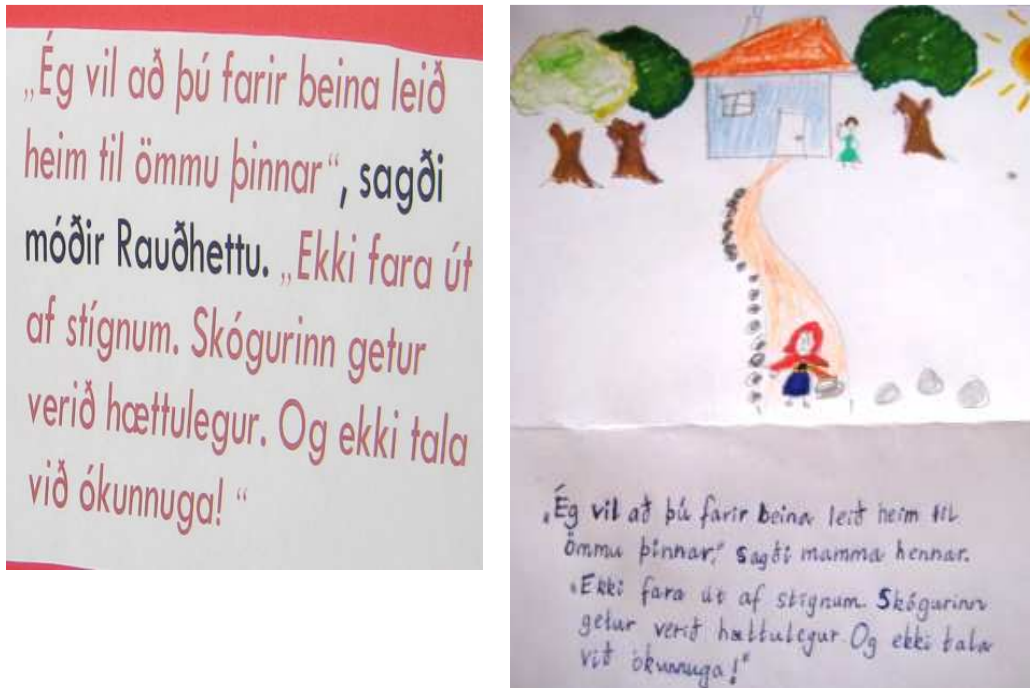 „Ég vil að þú farir beina leið
heim til ömmu þinnar“, sagði
móðir Rauðhettu. „Ekki fara út
af stígnum. Skógurinn getur
verið hættulegur. Og ekki tala
við ókunnuga! “
„Ég vil að þú farir beina leið heim til
ömmu þinnar,“ sagði mamma hennar.
„Ekki fara út af stígnum. Skógurinn
getur verið hættulegur. Og ekki tala
við ókunnuga!“